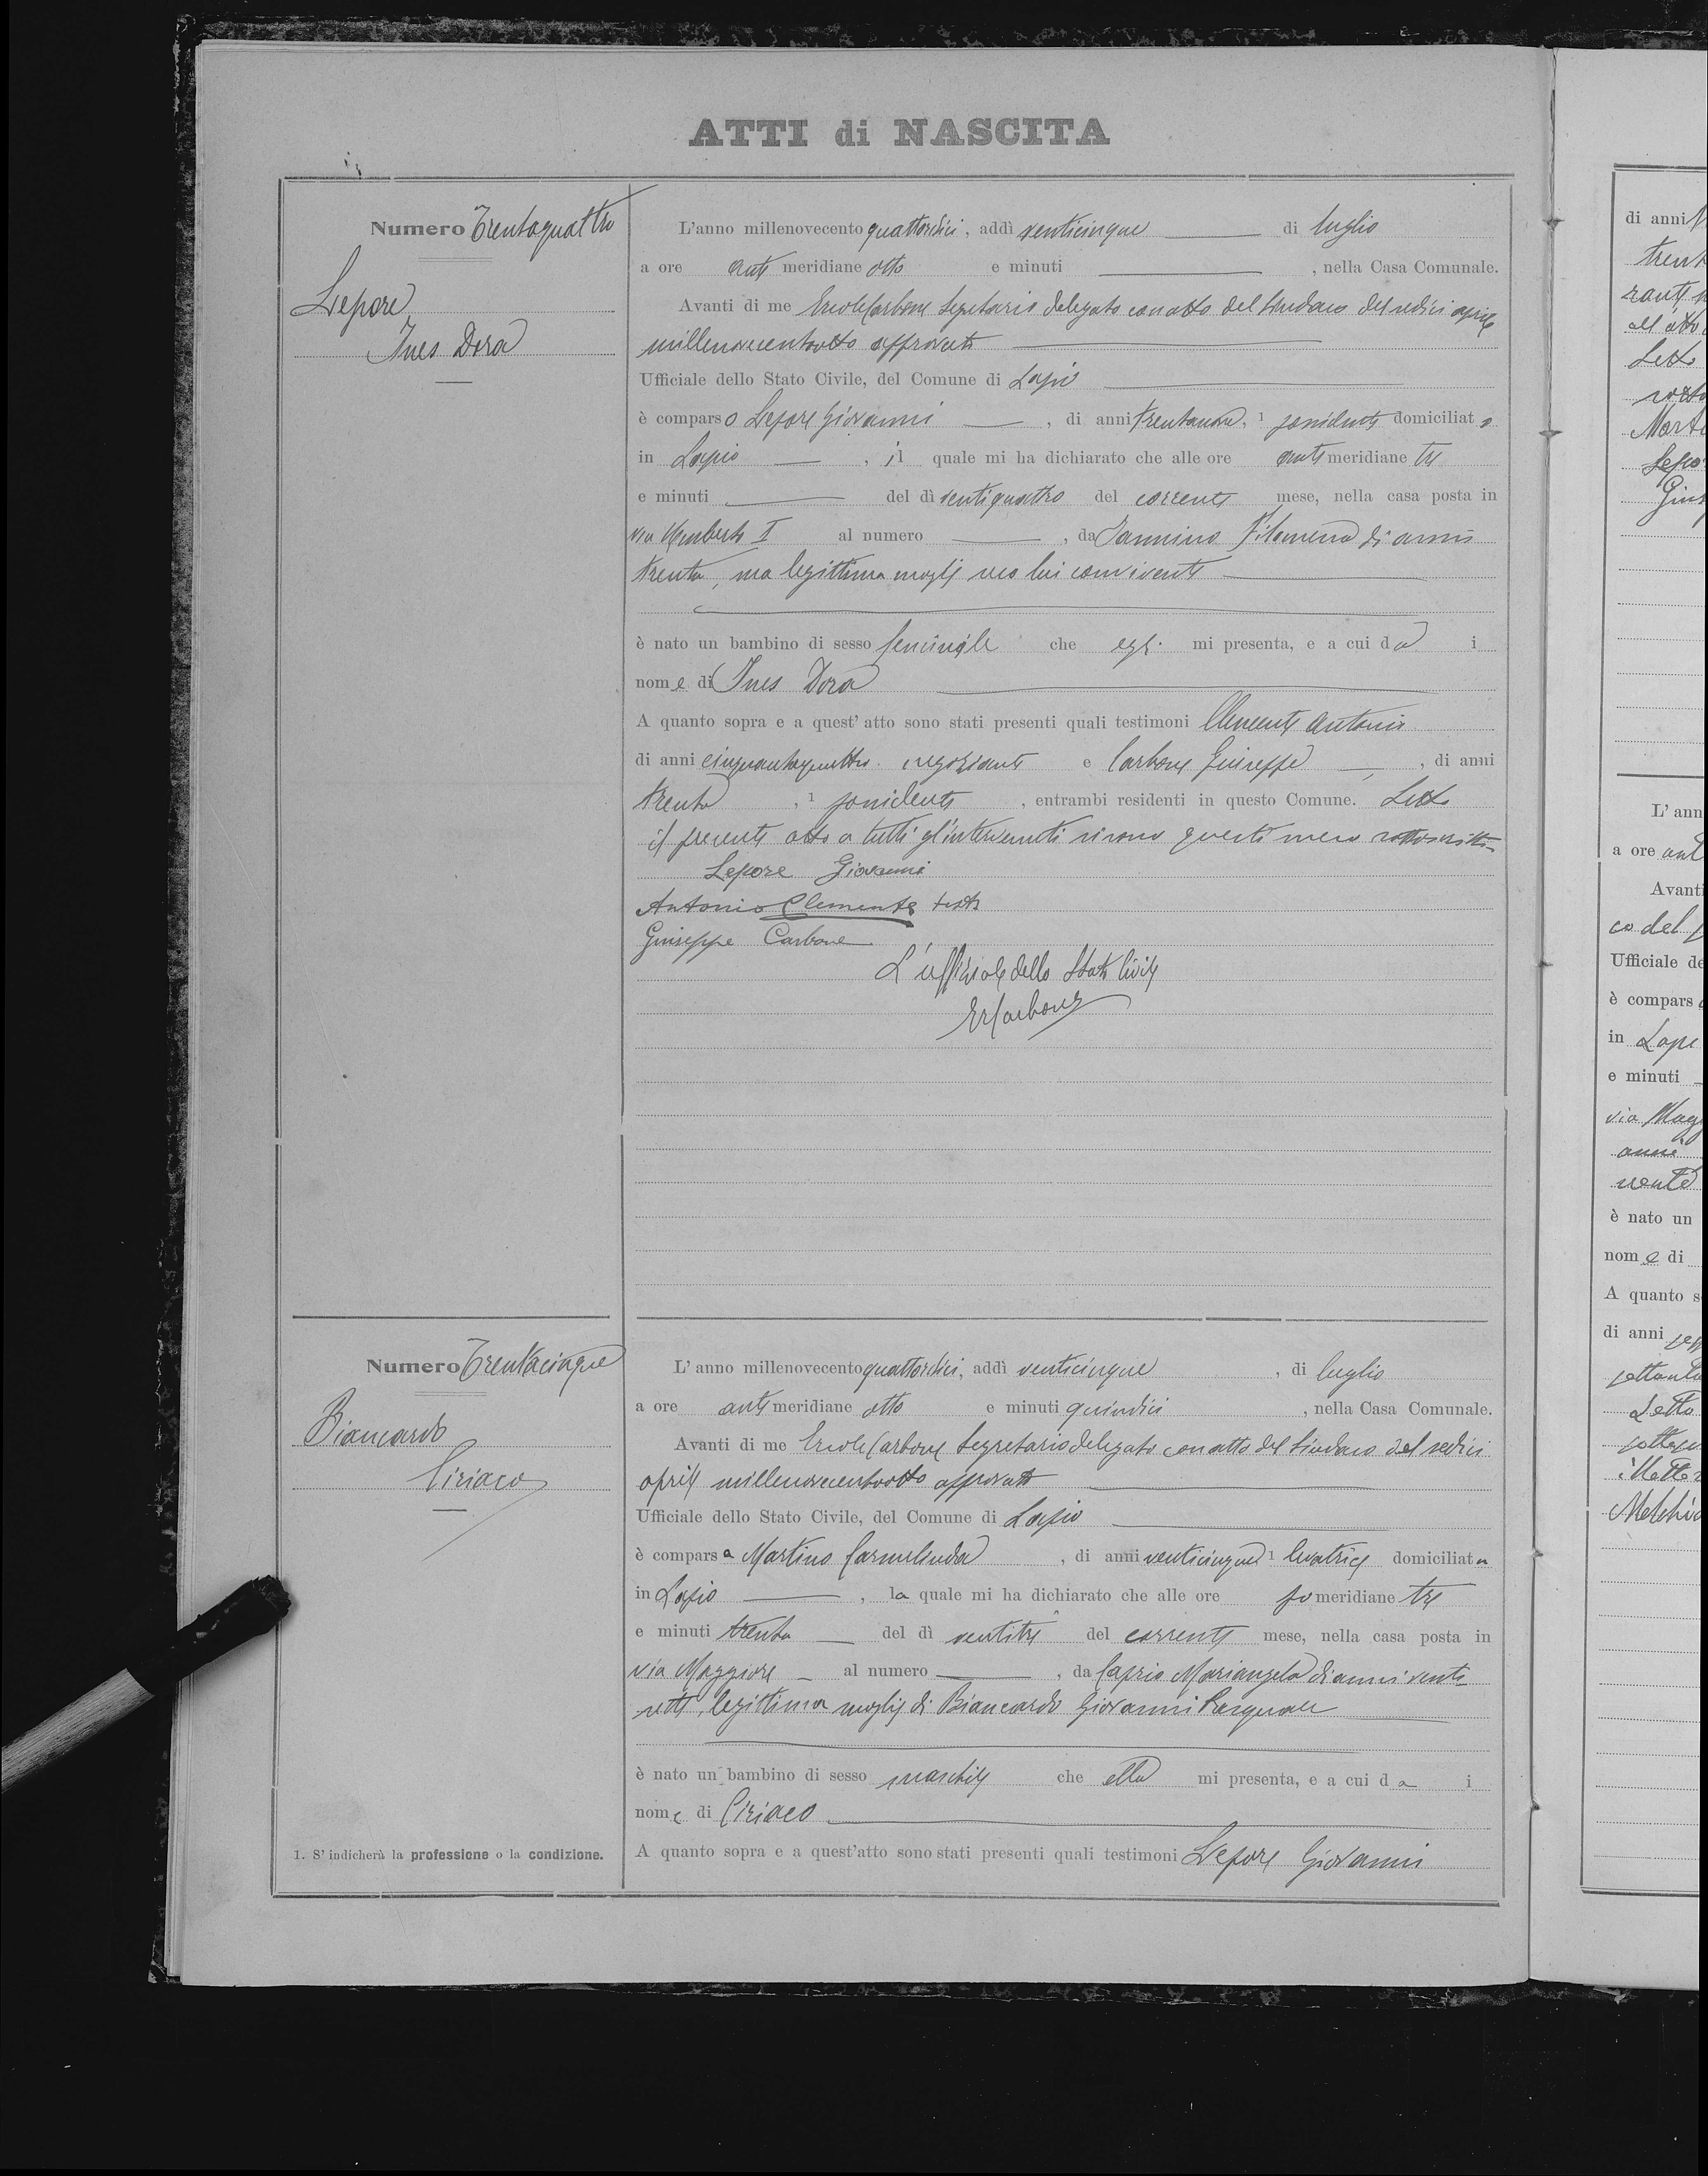 ATTI di NASCITA
Numero Trentaquattro
Lepore
Ines Dora
L'anno millenovecento quattordici, addì venticinque di luglio
a ore anti meridiane otto e minuti , nella Casa Comunale.
Avanti di me Ercole Carbone Segretario delegato con atto del Sindaco del sedici aprile
millenovecentootto approvato
Ufficiale dello Stato Civile, del Comune di Lapio
è comparso Lepore Giovanni , di anni trentanove, 1 possidente domiciliato
in Lapio , il quale mi ha dichiarato che alle ore anti meridiane tre
e minuti del dì ventiquattro del corrente mese, nella casa posta in
via Umberto I al numero , da Iannino Filomena di anni
trenta, sua legittima moglie seco lui convivente
è nato un bambino di sesso femminile che egli mi presenta, e a cui da i
nome di Ines Dora
A quanto sopra e a quest' atto sono stati presenti quali testimoni Clemente Antonio
di anni cinquantaquattro negoziante e Carbone Giuseppe , di anni
trenta , 1 possidente , entrambi residenti in questo Comune. Letto
il presente atto a tutti gl'intervenuti si sono questi meco sottoscritti
Lepore Giovanni
Antonio Clemente teste
Giuseppe Carbone
L'uffiziale dello Stato Civile
ErCarbone
Numero Trentacinque
Biancardo
Ciriaco
L' anno millenovecento quattordici, addì venticinque , di luglio
a ore anti meridiane otto e minuti quindici , nella Casa Comunale.
Avanti di me Ercole Carbone Segretario delegato con atto del Sindaco del sedici
aprile millenovecentootto approvato
Ufficiale dello Stato Civile, del Comune di Lapio
è comparsa Martino Carmelinda , di anni venticinque 1 levatrice domiciliata
in Lapio , la quale mi ha dichiarato che alle ore po meridiane tre
e minuti trenta del dì ventitre del corrente mese, nella casa posta in
via Maggiore al numero , da Caprio Mariangela di anni venti
sette, legittima moglie di Biancardo Giovanni Pasquale
è nato un bambino di sesso maschile che ella mi presenta, e a cui da i
nome di Ciriaco
1. S' indicherà la professione o la condizione.
A quanto sopra e a quest'atto sono stati presenti quali testimoni Lepore Giovanni
di anni
Letto
L' ann
a ore ant
Avanti
co del
Ufficiale de
è compars
in Lapi
e minuti
via Magg
anni
vente
è nato un
nome di
A quanto s
di anni
settanta
Letto